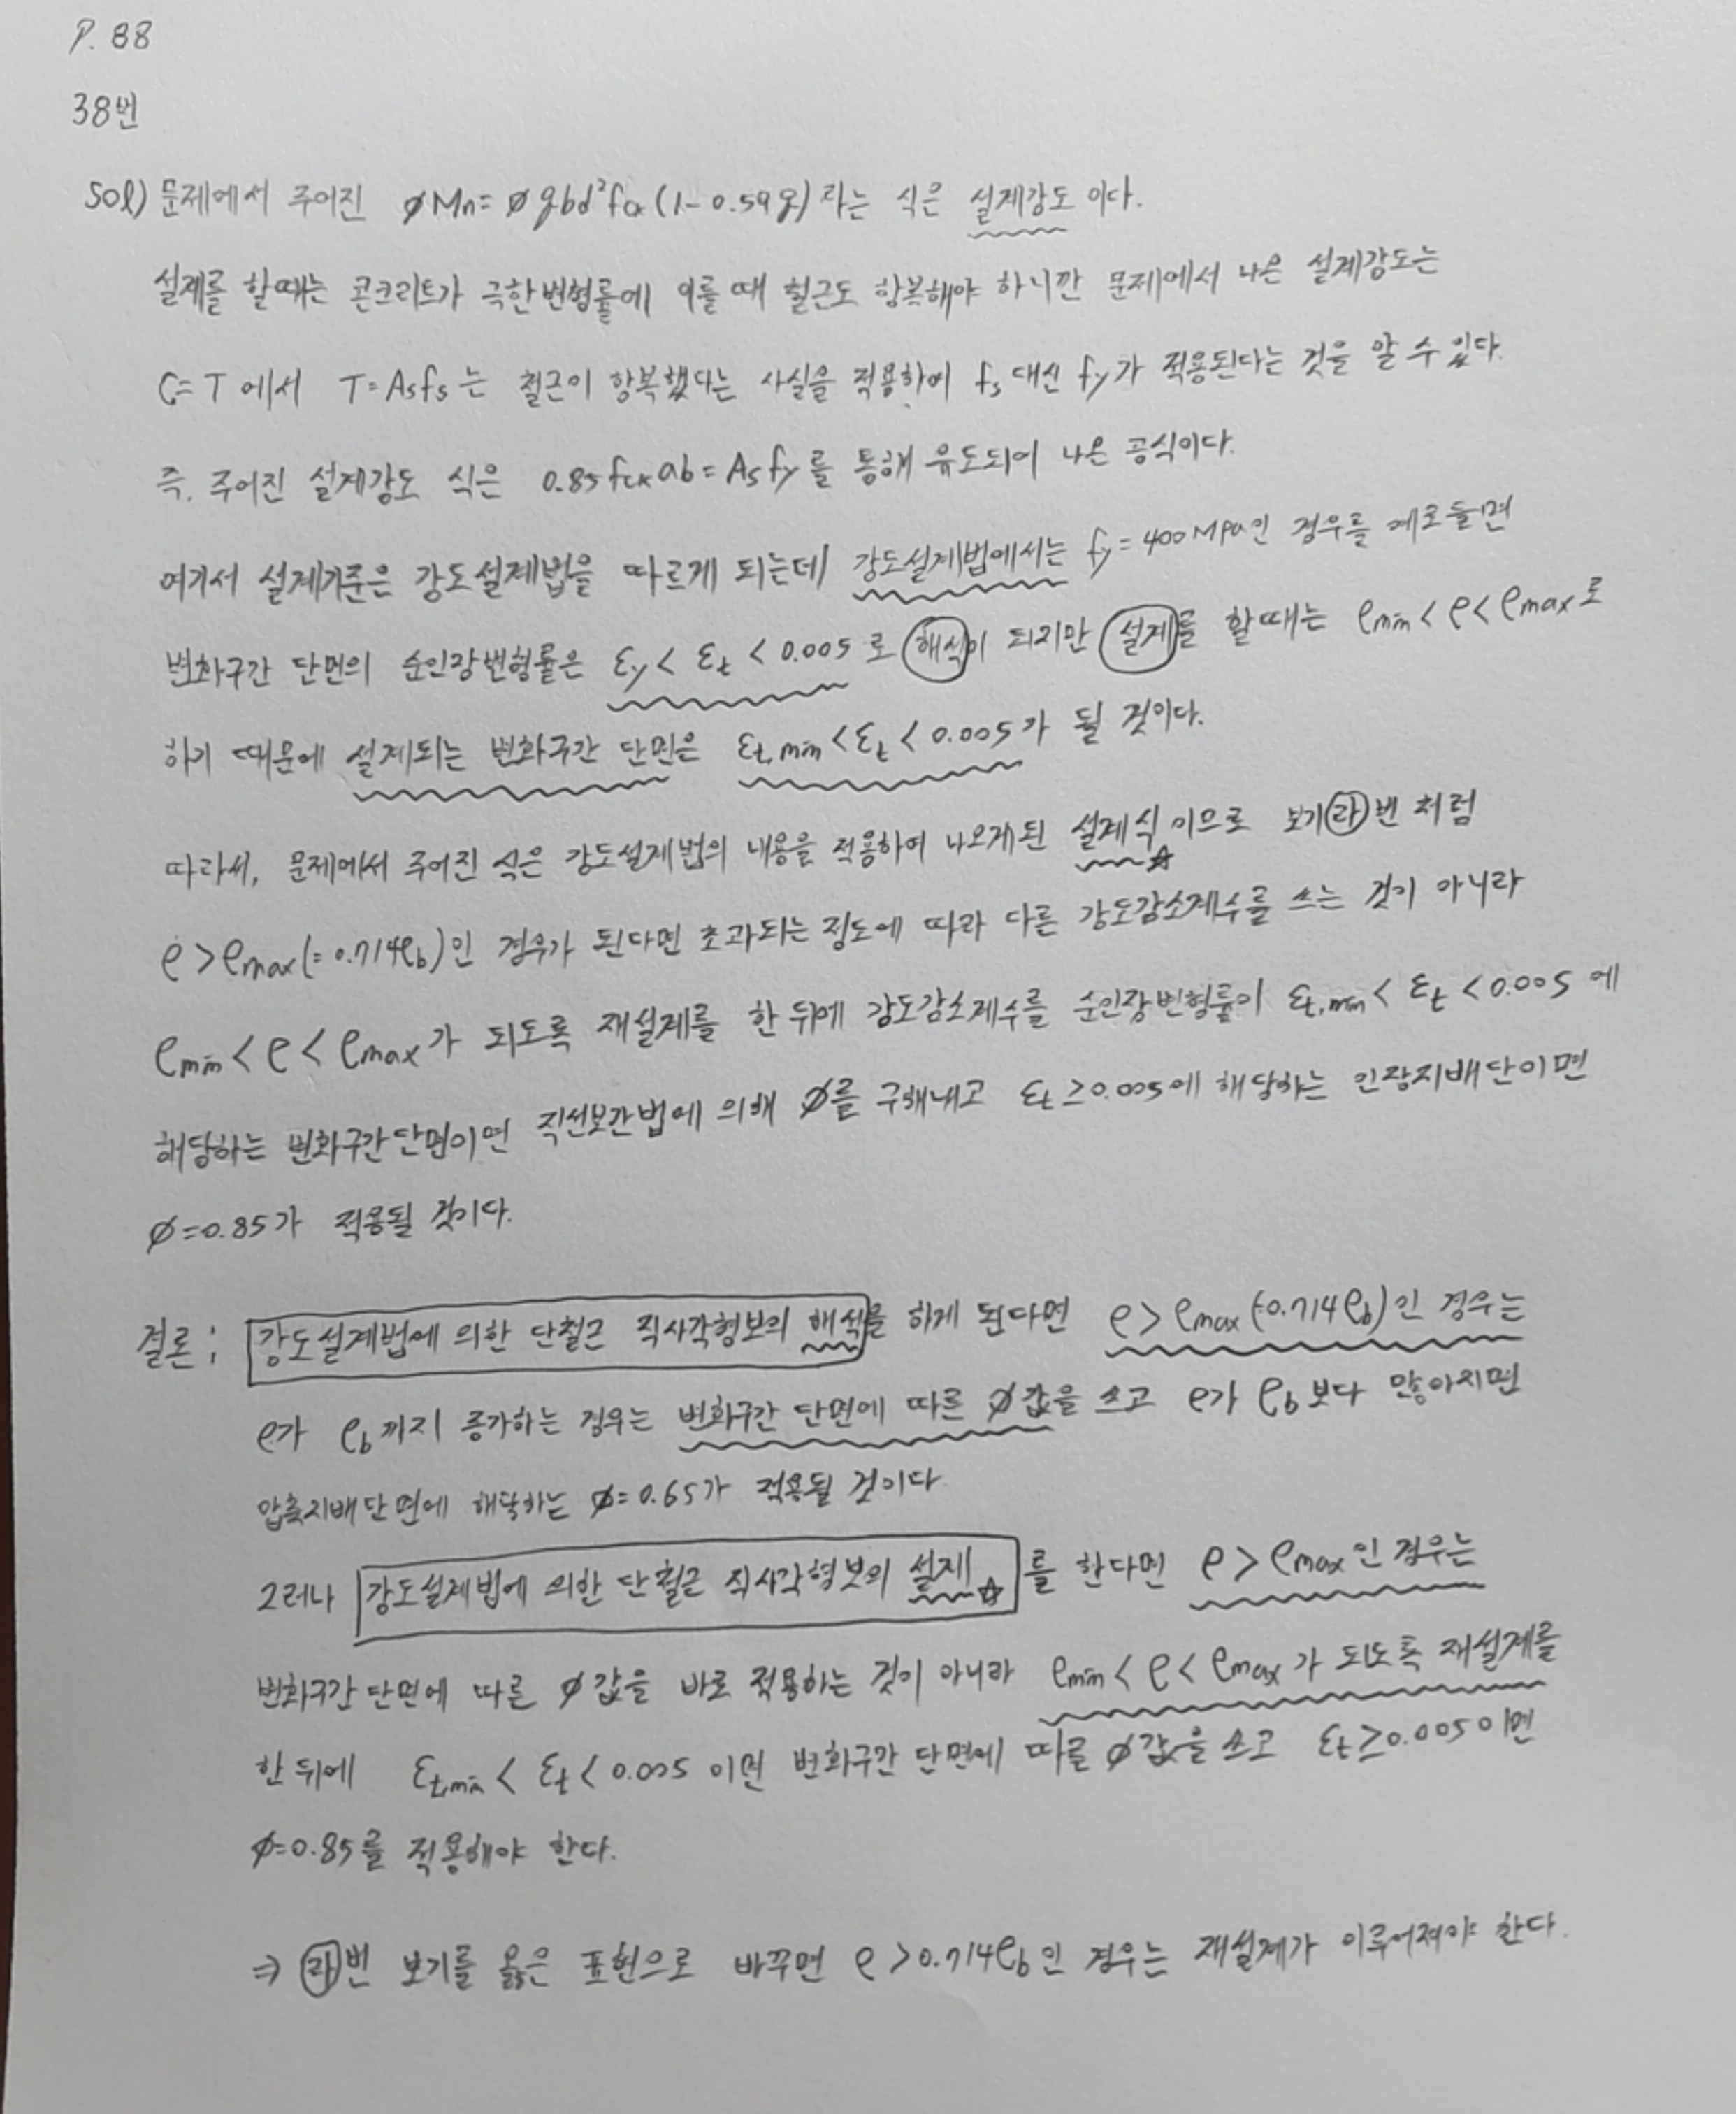 P. 88
38번
Sol) 문제에서 주어진 øMn= ø qbd²fck(1-0.59q) 라는 식은 설계강도 이다.
설계를 할때는 콘크리트가 극한변형률에 이를 때 철근도 항복해야 하니깐 문제에서 나온 설계강도는
C=T 에서 T=Asfs 는 철근이 항복했다는 사실을 적용하여 fs 대신 fy가 적용된다는 것을 알 수 있다.
즉, 주어진 설계강도 식은 0.85fck ab = As fy 를 통해 유도되어 나온 공식이다.
여기서 설계기준은 강도설계법을 따르게 되는데 강도설계법에서는 fy=400MPa인 경우를 예로들면
변화구간 단면의 순인장변형률은 εy < εt < 0.005 로 해석이 되지만 설계를 할때는 ρmin < ρ < ρmax로
하기 때문에 설계되는 변화구간 단면은 εt,min < εt < 0.005가 될 것이다.
따라서, 문제에서 주어진 식은 강도설계법의 내용을 적용하여 나오게된 설계식☆ 이므로 보기 라 번 처럼
ρ > ρmax(=0.714ρb)인 경우가 된다면 초과되는 정도에 따라 다른 강도감소계수를 쓰는 것이 아니라
ρmin < ρ < ρmax가 되도록 재설계를 한 뒤에 강도감소계수를 순인장변형률이 εt,min < εt < 0.005 에
해당하는 변화구간단면이면 직선보간법에 의해 ø를 구해내고 εt ≥ 0.005에 해당하는 인장지배단이면
ø=0.85가 적용될 것이다.
결론 ; 강도설계법에 의한 단철근 직사각형보의 해석를 하게 된다면 ρ > ρmax (=0.714ρb)인 경우는
ρ가 ρb까지 증가하는 경우는 변화구간 단면에 따른 ø값을 쓰고 ρ가 ρb보다 많아지면
압축지배단면에 해당하는 ø=0.65가 적용될 것이다.
그러나 강도설계법에 의한 단철근 직사각형보의 설계☆ 를 한다면 ρ > ρmax인 경우는
변화구간단면에 따른 ø값을 바로 적용하는 것이 아니라 ρmin < ρ < ρmax가 되도록 재설계를
한 뒤에 εt,min < εt < 0.005 이면 변화구간 단면에 따른 ø값을 쓰고 εt ≥ 0.005이면
ø=0.85를 적용해야 한다.
⇒ 라번 보기를 옳은 표현으로 바꾸면 ρ > 0.714ρb인 경우는 재설계가 이루어져야 한다.